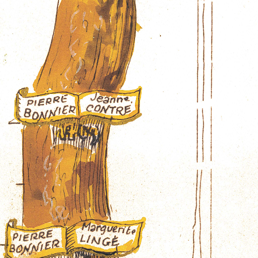 PIERRE
BONNIER
Jeanne
CONTRÉ
PIERRE
BONNIER
Marguerite
LINGÉ